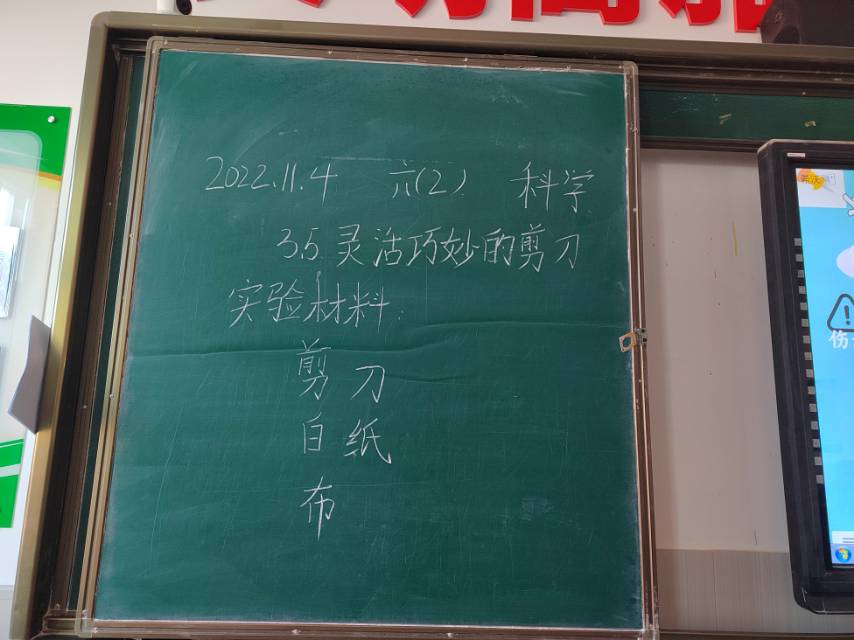 2022.11.4 六(2) 科学
3.5 灵活巧妙的剪刀
实验材料:
剪刀
白纸
布
伤